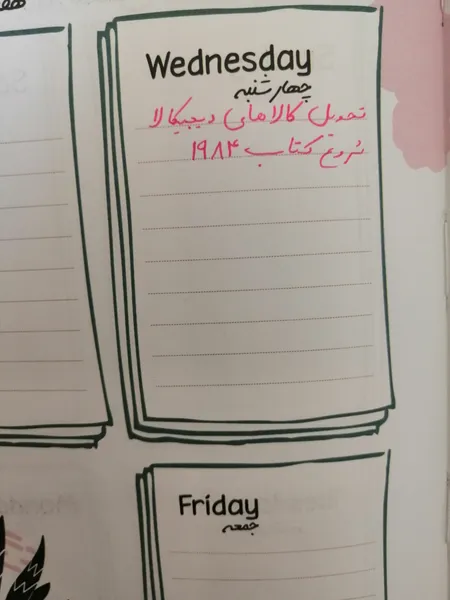 Wednesday
چهارشنبه
تحویل کالاهای دیجیکالا
شروع کتاب ۱۹۸۴
Friday
جمعه